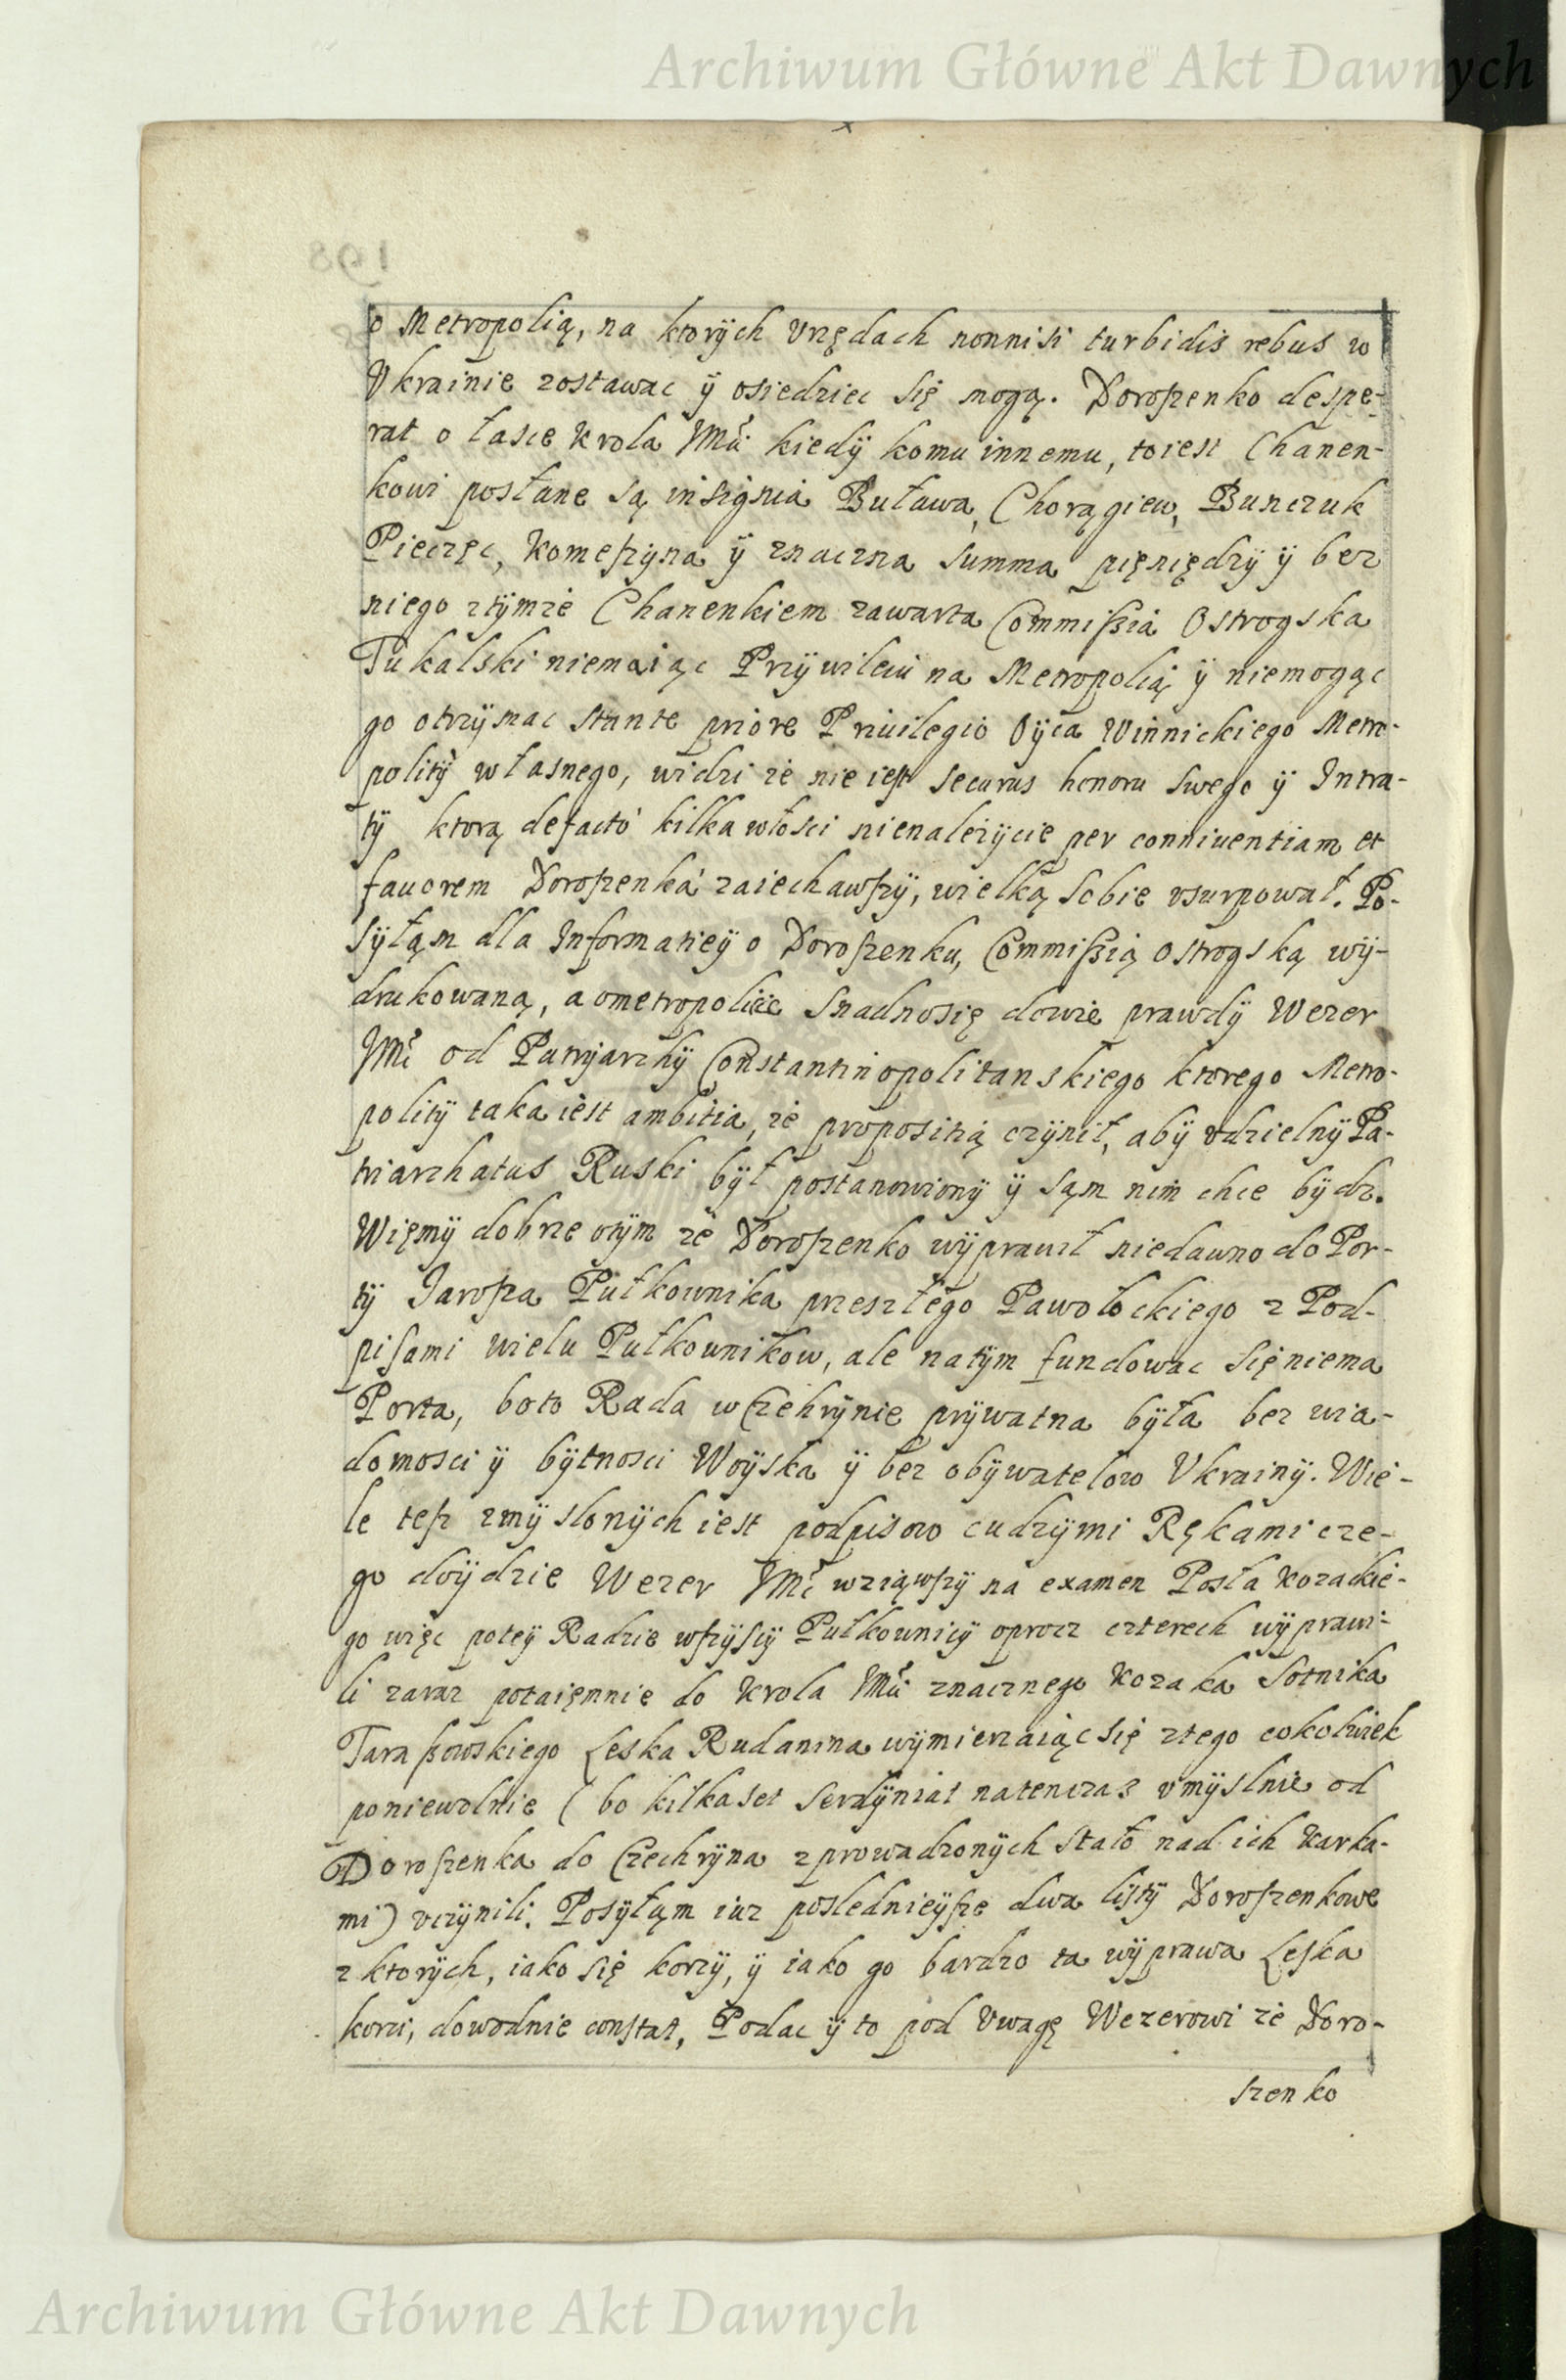 Archiwum Główne Akt Dawnych
198
o Metropolią, na ktorÿch Vrzędach nonnisi turbidis rebus w
Vkrainie zostawac ÿ osiedziec się mogą. Doroszenko despe-
rat o łasce Krola JMci kiedÿ komu innemu, toiest Chanen-
kowi posłane są insignia Buława, Chorągiew, Bunczuk
Pieczęc, Komeszÿna ÿ znaczna summa pięniędzÿ ÿ bez
niego ztÿmże Chanenkiem zawarta Commissia Ostrogska
Tukalski niemaiąc Przÿwileiu na Metropolią ÿ niemogąc
go otrzÿmac stante priore Priuilegio Oÿca Winnickiego Metro-
politÿ własnego, widzi że nie iest securus honoru swego ÿ Intra-
tÿ ktorą defacto kilka włosci nienależÿcie per conniuentiam et
fauorem Doroszenka zaiechawszÿ, wielką sobie vsurpował. Po-
sÿłąm dla Informatieÿ o Doroszenku, Commissią Ostrogską wÿ-
drukowaną, a ometropoliie snadnosię dowie prawdÿ Wezer
JMć od Patryarchÿ Constantinopolitanskiego ktorego Metro-
politÿ taka iest ambitia, że propositią czÿnił, abÿ vdzielnÿ Pa-
triarchatus Ruski bÿł postanowionÿ ÿ sąm nim chce bÿdz.
Więmÿ dobrze otÿm że Doroszenko wÿprawił niedawno do Por-
tÿ Jarosza Pułkownika przeszłego Pawołockiego z Pod-
pisami wielu Pułkownikow, ale natÿm fundowac się niema
Porta, boto Rada w Czehrÿnie prÿwatna bÿła bez wia-
domosci ÿ bÿtnosci Woÿska ÿ bez obÿwatelow Vkrainÿ. Wie-
le tesz zmÿslonÿch iest podpisow cudzÿmi Rękami cze-
go doÿdzie Wezer JMć wziąwszÿ na examen Posła Kozackie-
go więc poteÿ Radzie wszÿscÿ Pułkownicÿ oprocz czterech wÿprawi-
li zaraz potaięmnie do Krola JMci znacznego Kozaka Sotnika
Taraszowskiego Leska Rudanina wÿmierzaiąc się ztego cokolwiek
poniewolnie (bo kilkaset Serdÿniat natenczas vmÿslnie od
Doroszenka do Czechrÿna zprowadzonÿch stało nad ich Karka-
mi) vczÿnili. Posÿłąm iuz poslednieÿsze dwa listÿ Doroszenkowe
z ktorÿch, iako się korzÿ, ÿ iako go bardzo ta wÿprawa Leska
korzi, dowodnie constat, Podac ÿ to pod Vwagę Wezerowi że Doro-
szenko
Archiwum Główne Akt Dawnych